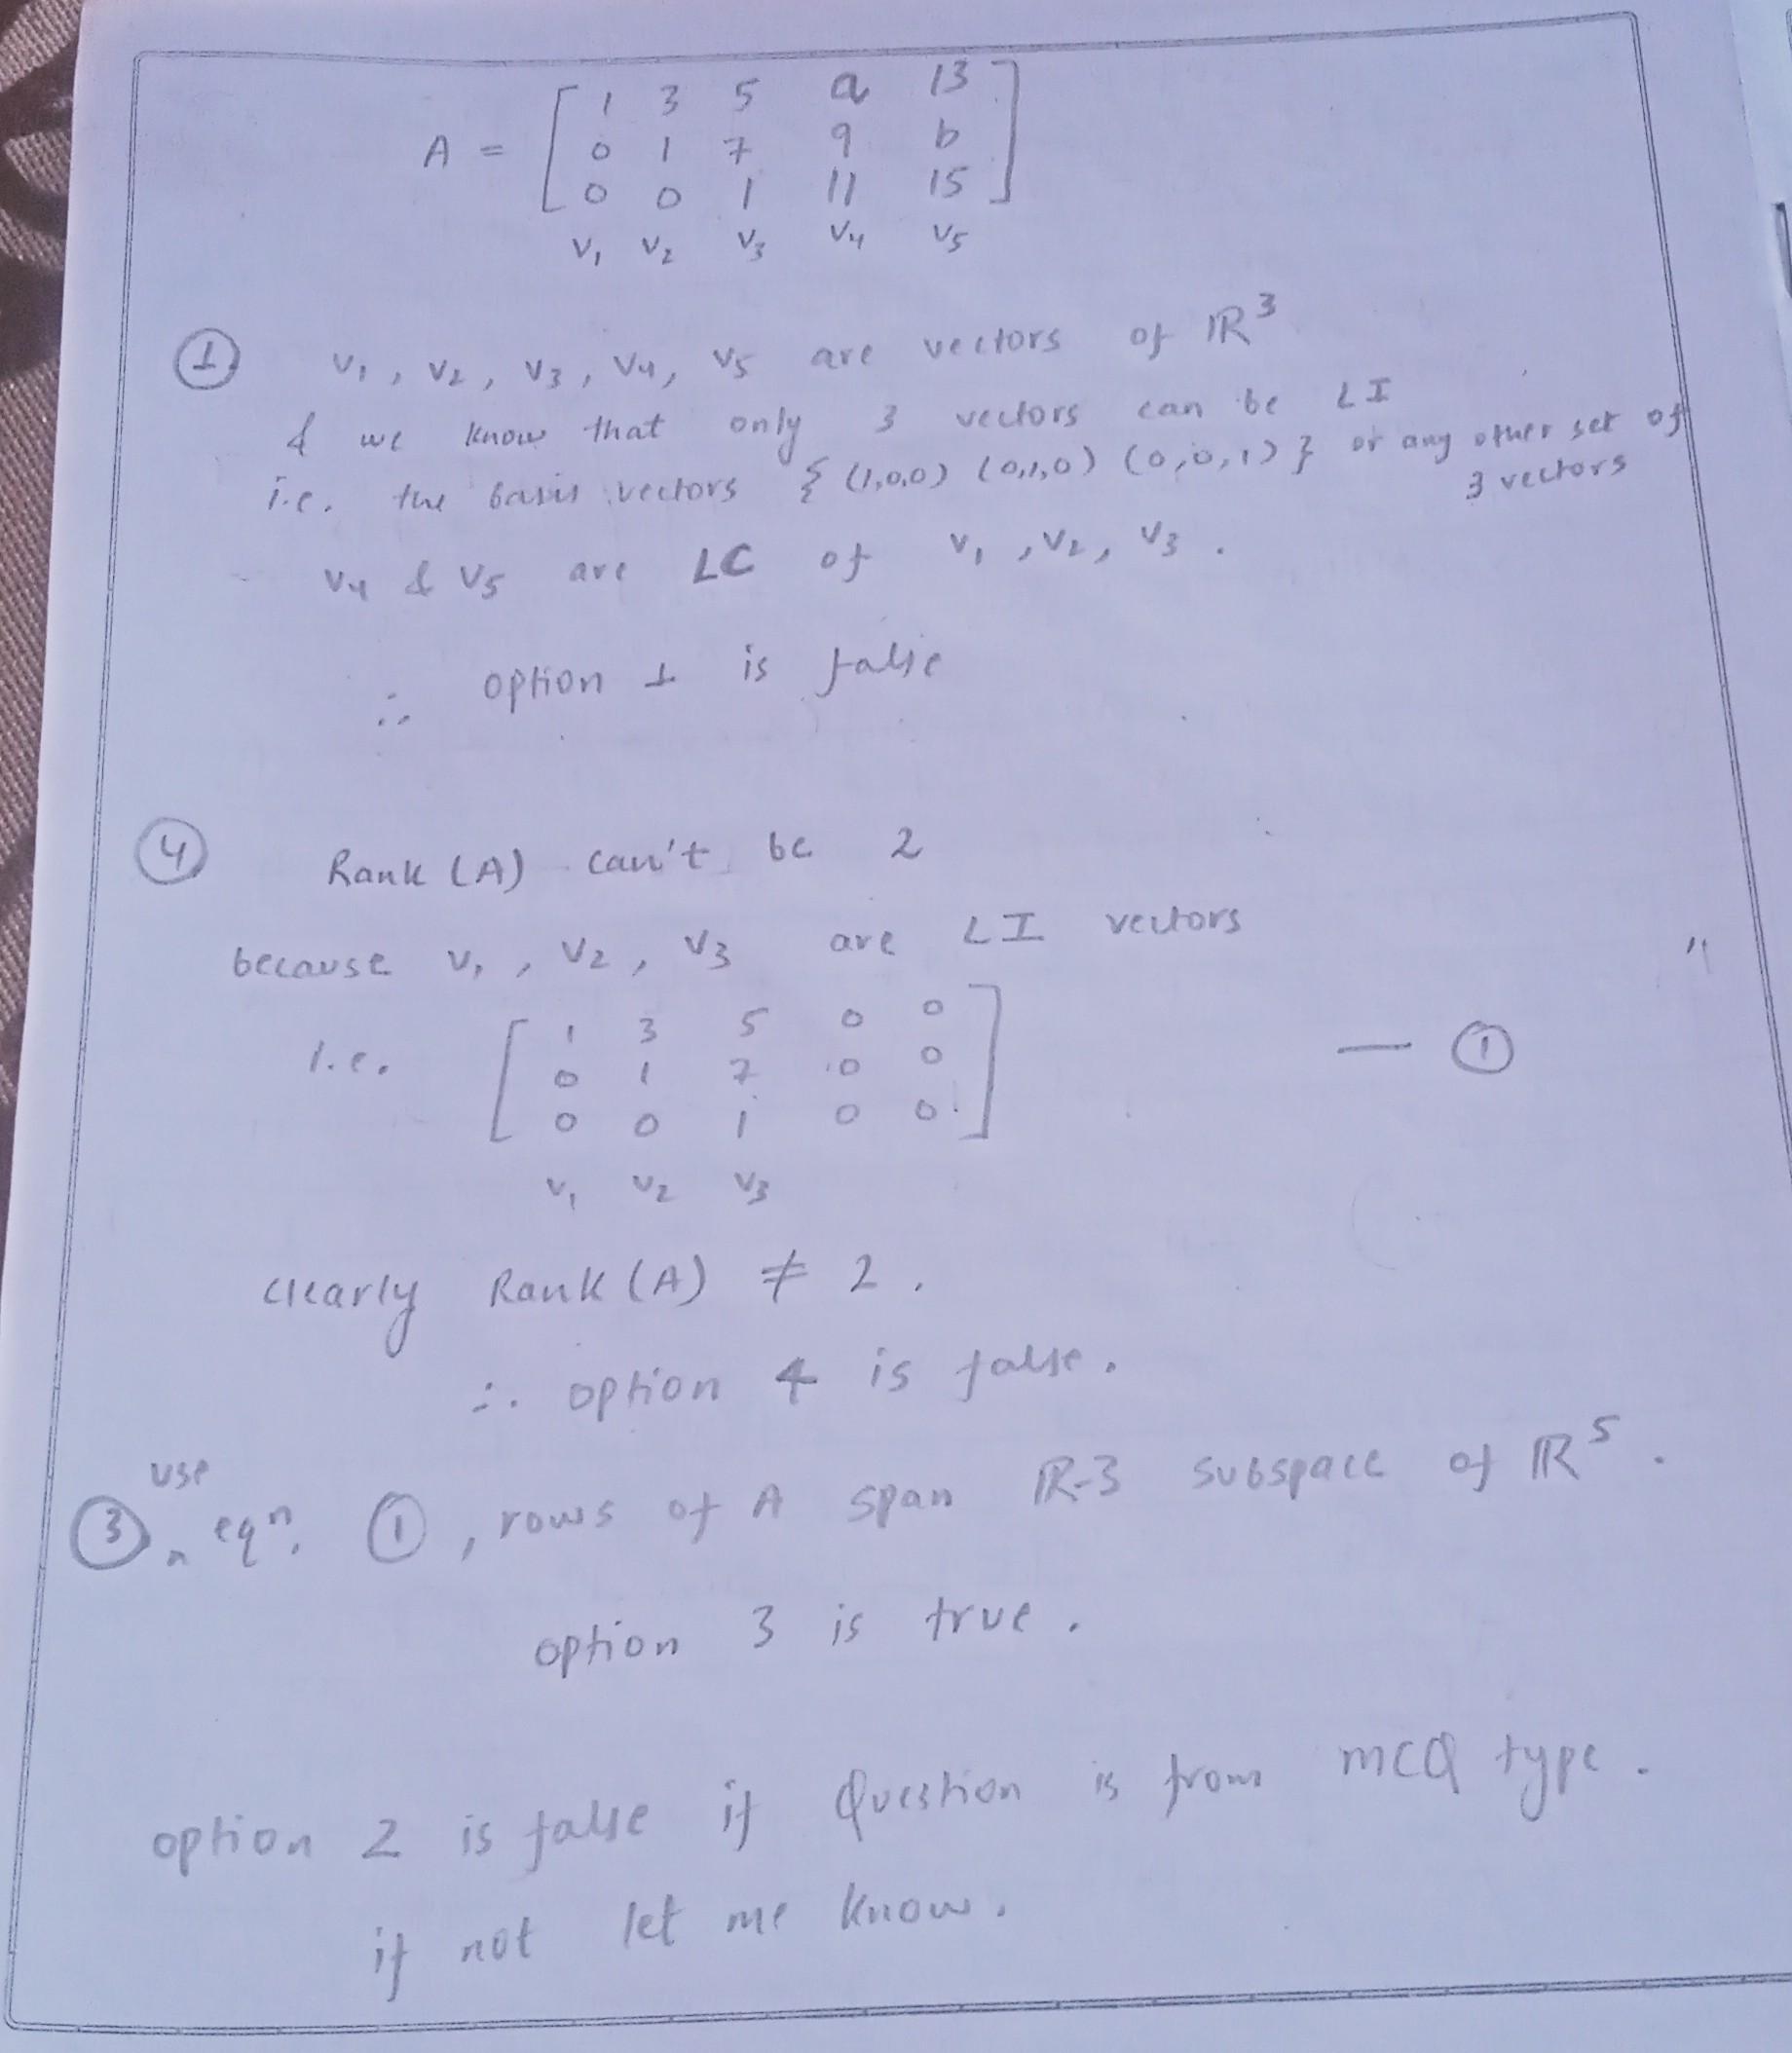 A = [ 1 3 5 a 13
0 1 7 9 b
0 0 1 11 15 ]
v1 v2 v3 v4 v5
① v1, v2, v3, v4, v5 are vectors of ℝ³
& we know that only 3 vectors can be LI
i.e. the basis vectors { (1,0,0) (0,1,0) (0,0,1) } or any other set of
3 vectors
v4 & v5 are LC of v1, v2, v3.
∴ option 1 is false
④ Rank (A) can't be 2
because v1, v2, v3 are LI vectors
i.e. [ 1 3 5 0 0
0 1 7 0 0 — ①
0 0 1 0 0 ]
v1 v2 v3
clearly Rank (A) ≠ 2.
∴ option 4 is false.
③ use eqⁿ. ①, rows of A span ℝ-3 subspace of ℝ⁵.
option 3 is true.
option 2 is false if Question is from MCQ type.
if not let me know.